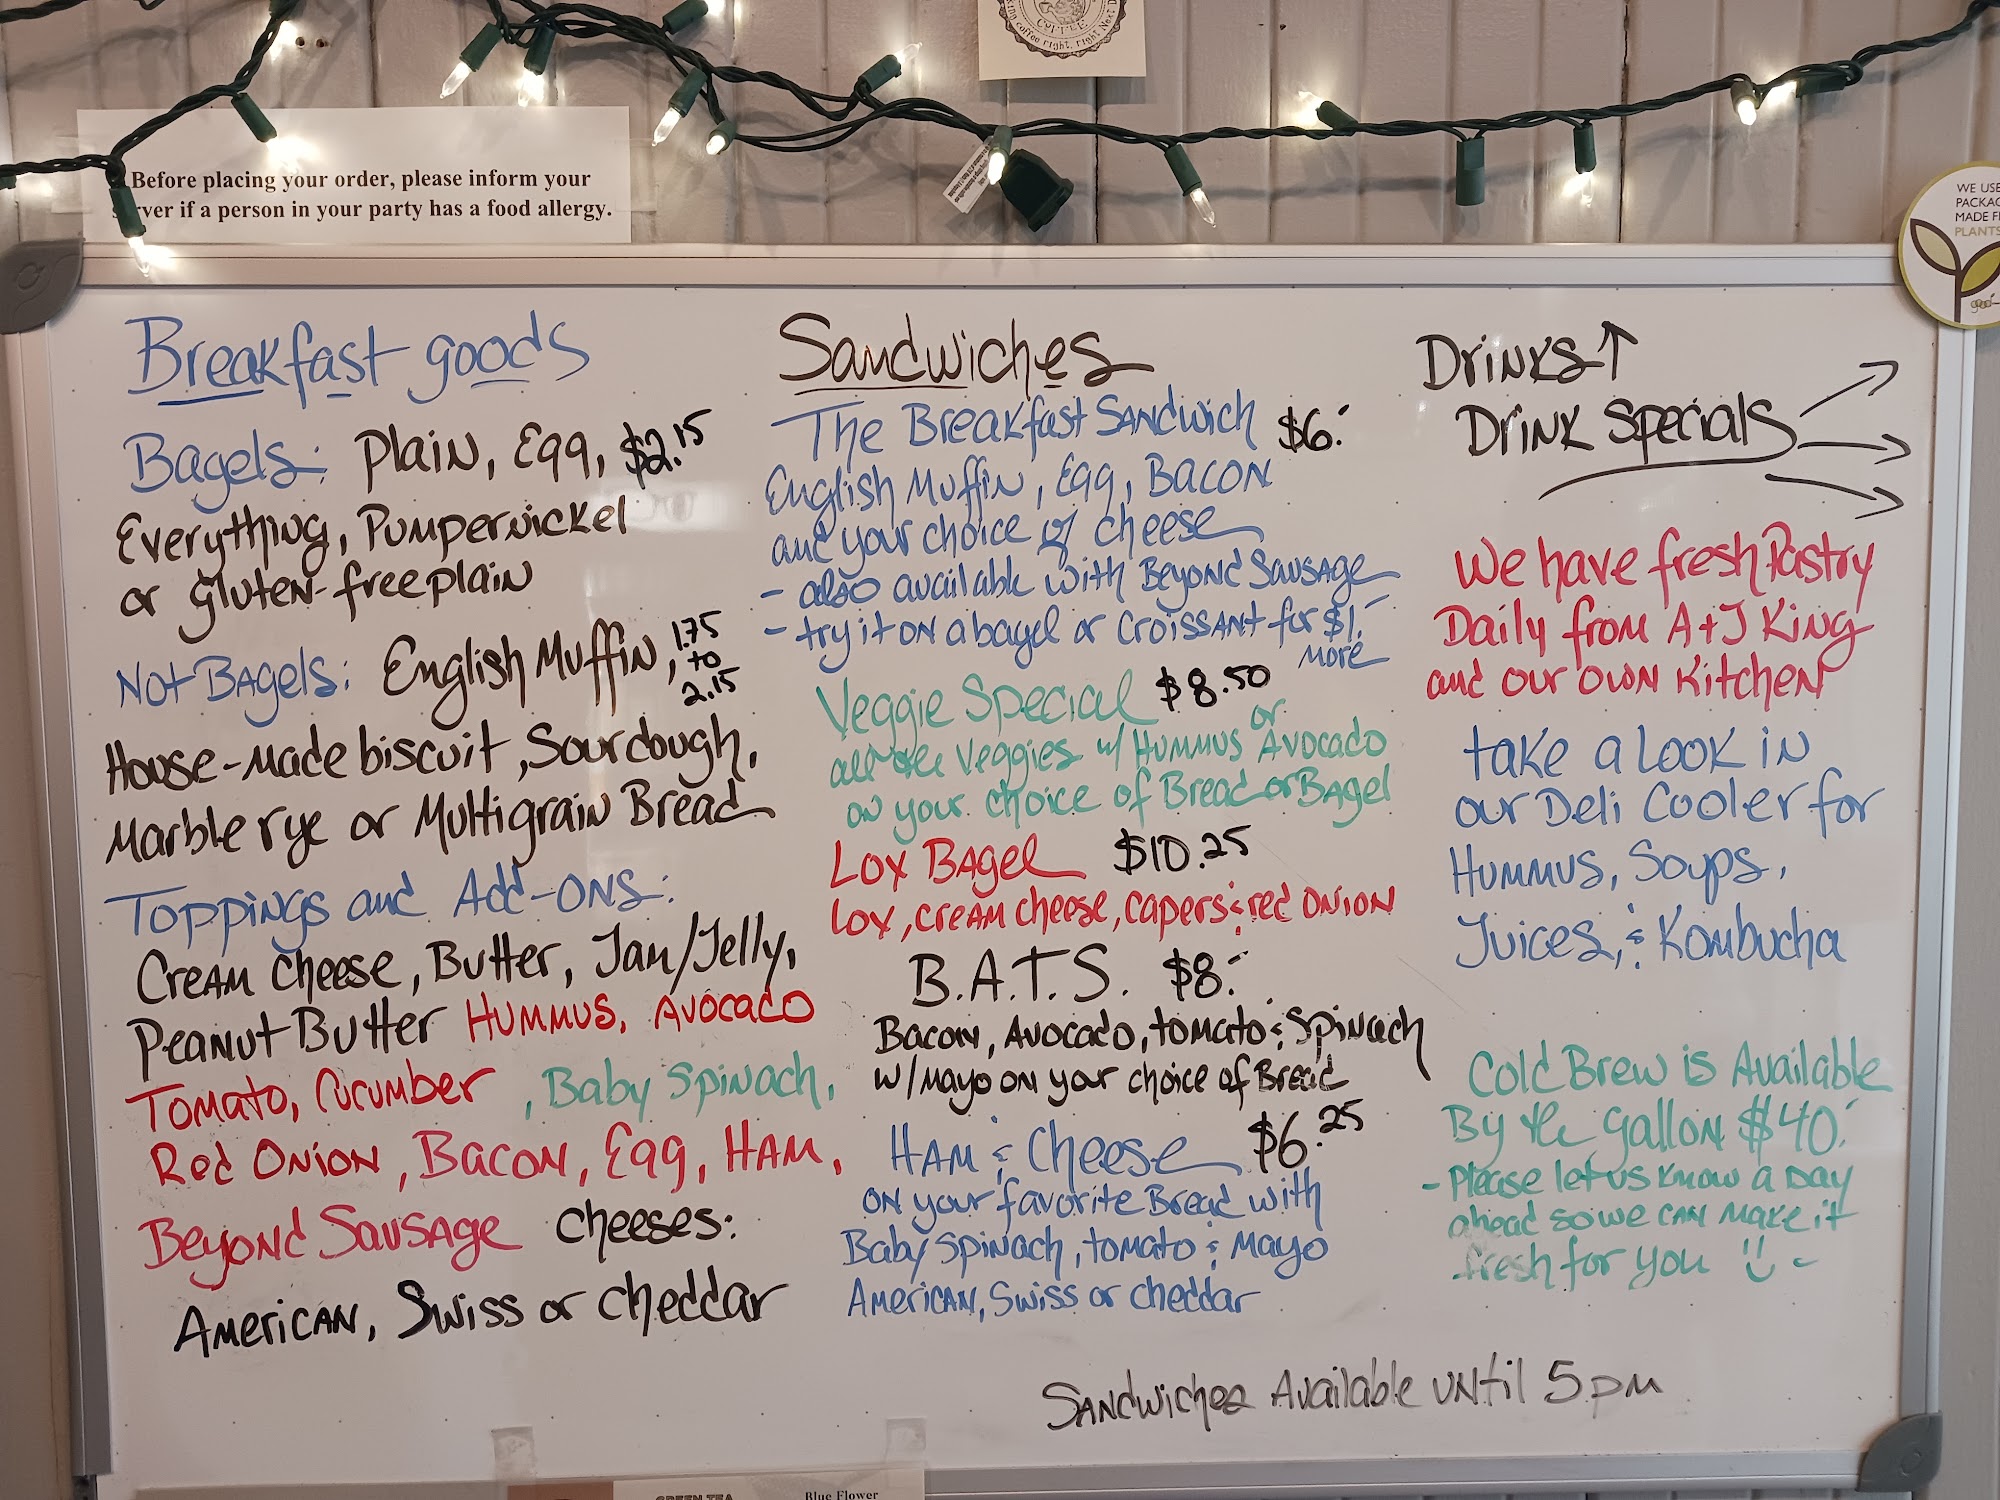 COFFEE
coffee right, right Next D
Before placing your order, please inform your
server if a person in your party has a food allergy.
WE USE
PACKAG
MADE F
PLANTS
Breakfast goods
Bagels: Plain, Egg, $2.15
Everything, Pumpernickel
or gluten-free plain
Not Bagels: English Muffin, 1.75
to
2.15
House-Made biscuit, Sourdough,
Marble rye or Multigrain Bread
Toppings and Add-ons:
Cream Cheese, Butter, Jam/Jelly,
Peanut Butter Hummus, Avocado
Tomato, Cucumber, Baby Spinach,
Red Onion, Bacon, Egg, Ham,
Beyond Sausage Cheeses:
American, Swiss or Cheddar
Sandwiches
The Breakfast Sandwich $6.-
English Muffin, Egg, Bacon
and your choice of cheese
- also available with Beyond Sausage
- try it on a bagel or Croissant for $1.-
More
Veggie Special $8.50
all the Veggies w/ Hummus or Avocado
on your choice of Bread or Bagel
Lox Bagel $10.25
Lox, cream cheese, capers & red onion
B.A.T.S. $8.-
Bacon, Avocado, tomato & Spinach
w/ Mayo on your choice of Bread
Ham & Cheese $6.25
on your favorite Bread with
Baby Spinach, tomato & Mayo
American, Swiss or cheddar
Sandwiches Available until 5pm
Drinks ↑
Drink Specials
We have fresh Pastry
Daily from A+J King
and our own Kitchen
take a look in
our Deli Cooler for
Hummus, Soups,
Juices, & Kombucha
Cold Brew is Available
By the gallon $40.-
- Please let us know a Day
ahead so we can make it
fresh for you
GREEN TEA
Blue Flower